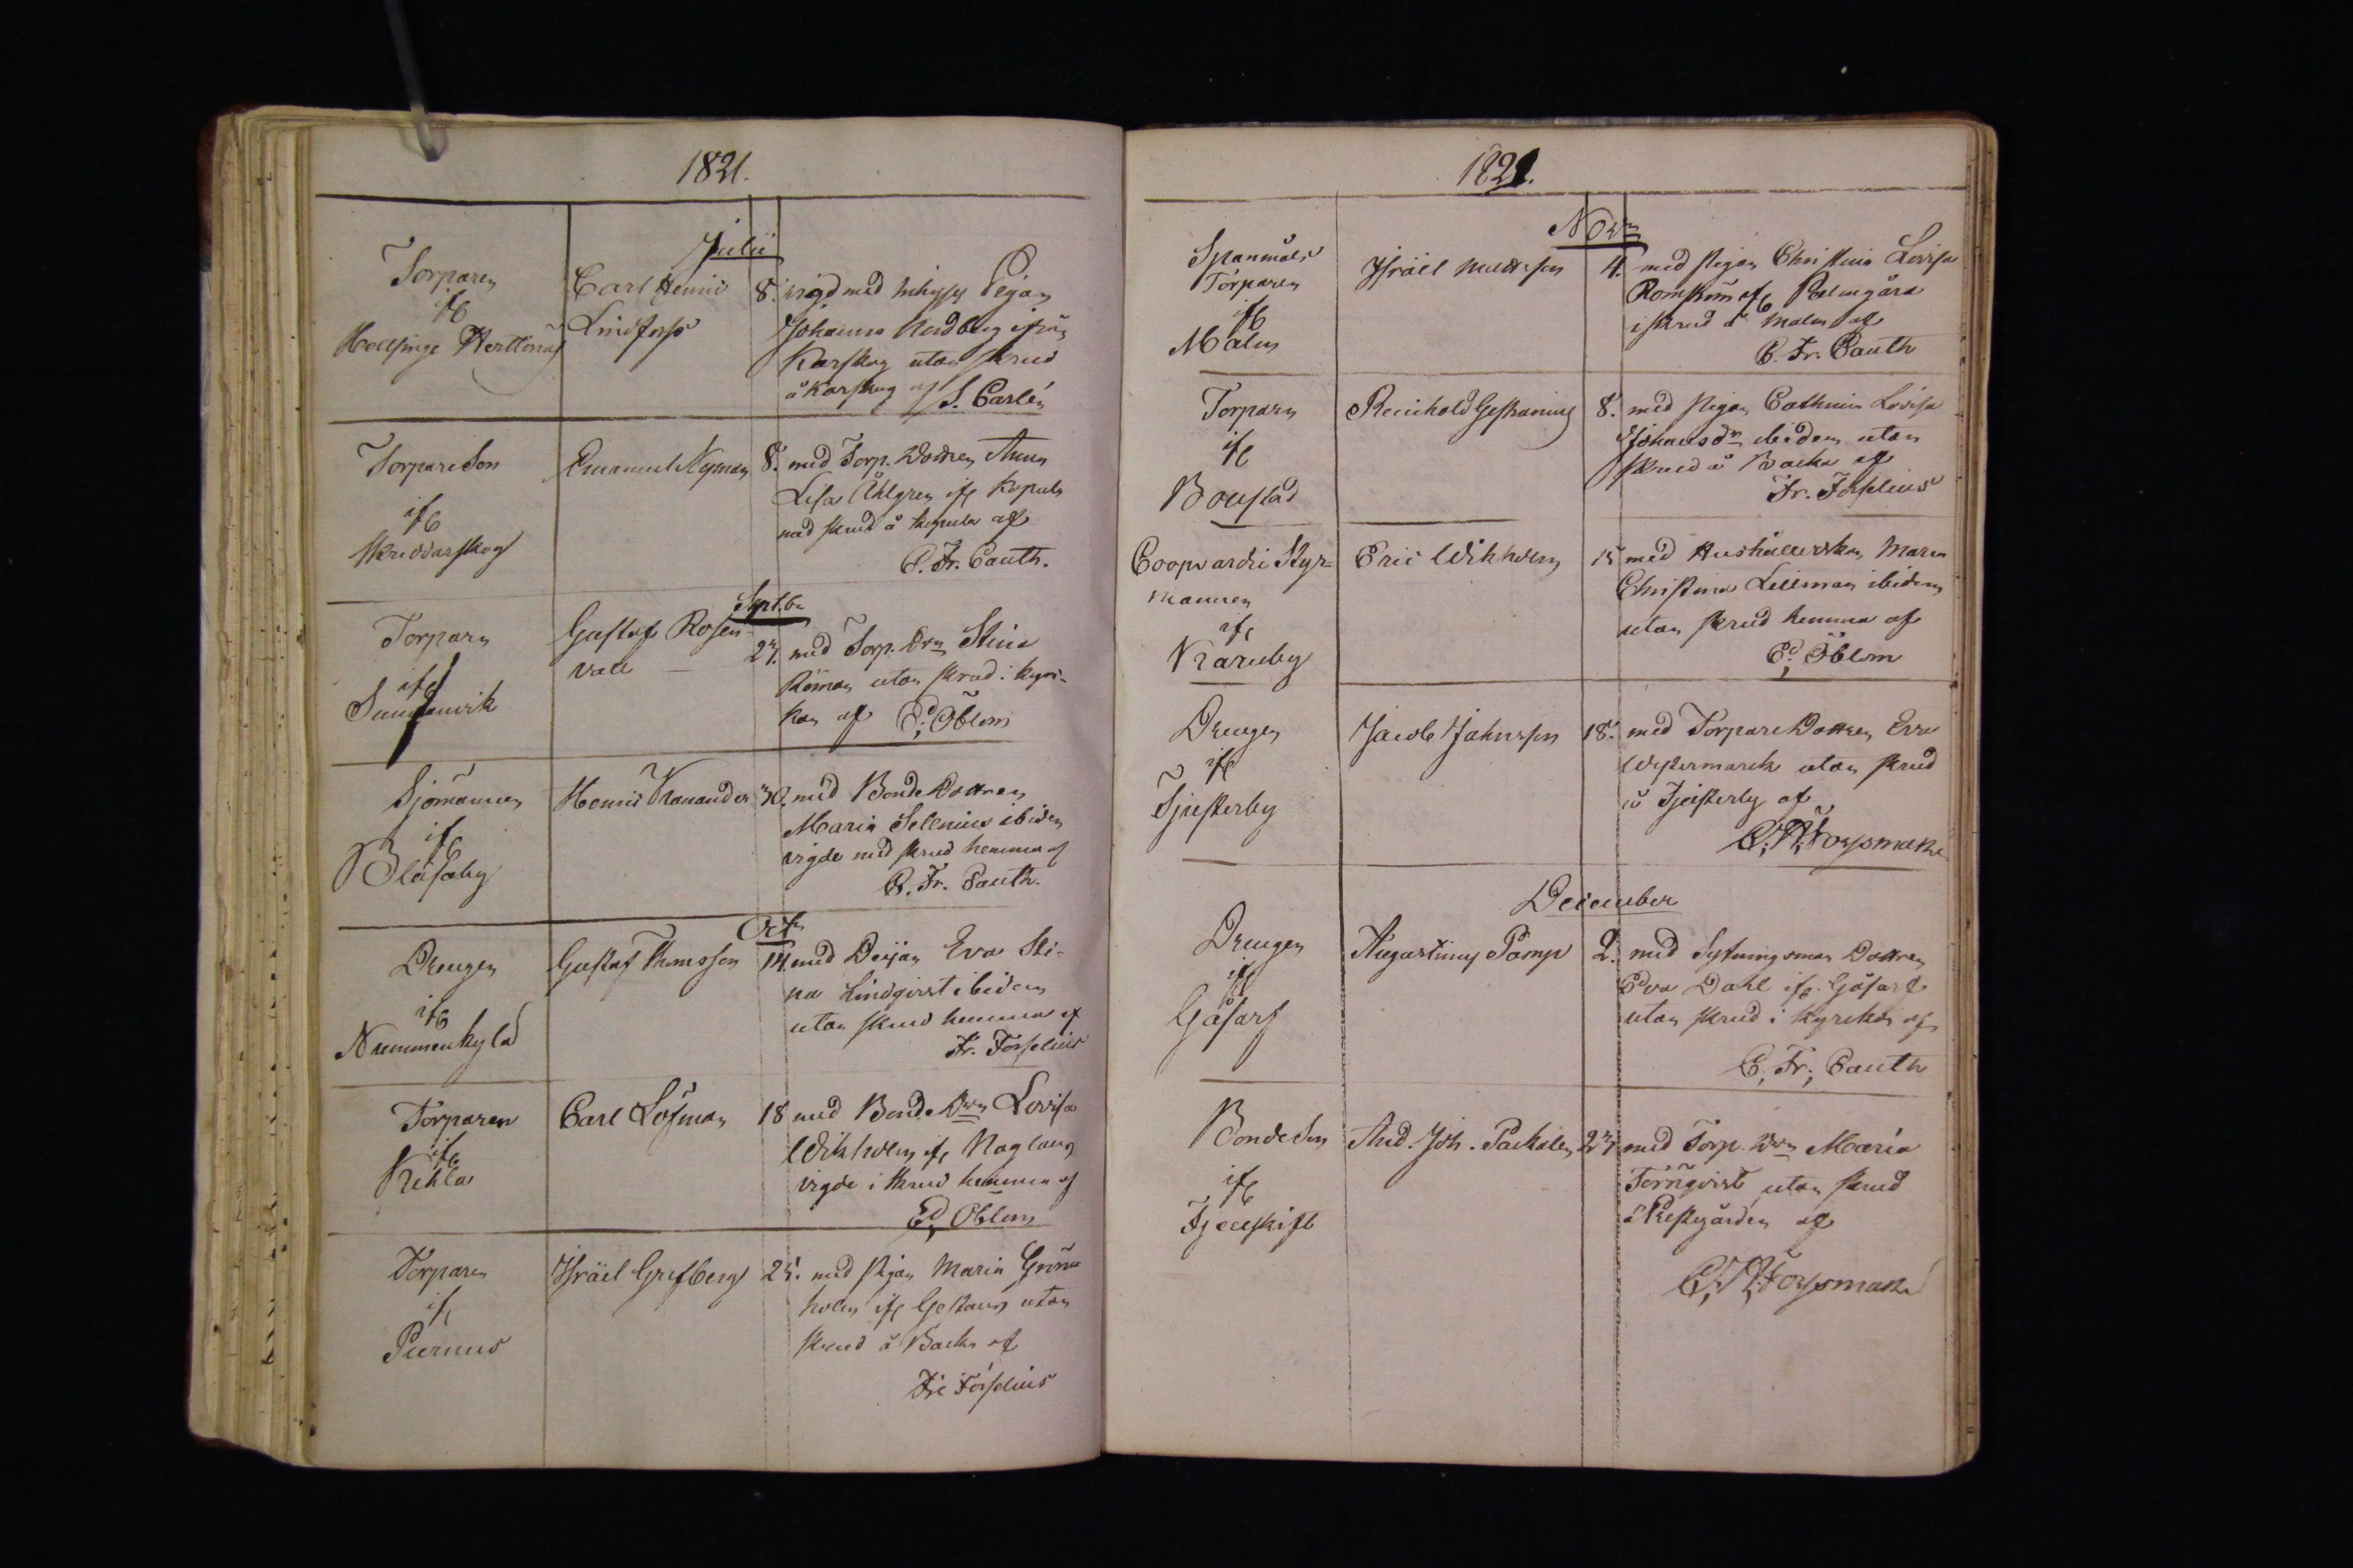 1821.
Julii
Torparen
ifr
Helsinge Herttonäs
Carl Henric
Lindfors
8. vigd med Pigan
Johanna Nordberg ifrån
Karskog utan skrud
å Karskog af S. Carlén
Torpare Son
ifr
Skreddarskog
Emanuel Nyman
8. med Torp. Dottren Anna
Lisa Åhlgren ifr Kopula
med skrud å Kopula af
C. Fr. Cauth.
Septbr
Torparn
ifr
Sundanvik
Gustaf Rosen
vall
27. med Torp. Drn Stina
Röman utan skrud i kyr-
kan af Ed. Öblom
Sjömannen
ifr
Blåsaby
Henric Kranander
30. med Bonde Dottren
Maria Selenius ibidem
vigde med skrud hemma af
C. Fr. Cauth.
Octr
Drengen
ifr
Nummenkylä
Gustaf Thomsson
14. med Deijan Eva Sti-
na Lindqvist ibidem
utan skrud hemma af
Fr. Forselius
Torparen
ifr
Rehla
Carl Löfman
18 med Bonde Drn Lovisa
Wikholm ifr Naglarn
vigde i skrud hemma af
Ed. Öblom
Torparen
ifr
Purnus
Israël Grefberg
25. med Pigan Maria Grön
holm ifr utan
skrud å Backa af
Fr. Forselius
1821.
Novr
Spanmåls
Torparen
ifr
Malm
Israël Mattsson
4. med Pigan Christina Lovisa
Romström ifr Palmgård
i skrud å Malm af
C. Fr. Cauth
Torparn
ifr
Boustad
Reinhold Gestranius
8. med Pigan Cathrina Lovisa
Johansdr ibidem utan
skrud å Backa af
Fr. Forselius
Coopvardi Styr-
mannen
ifr
Karuby
Eric Wikholm
15 med Hushållerskan Maria
Christina Lillman ibidem
utan skrud hemma af
Ed. Öblom
Drengen
ifr
Tjusterby
Jacob Johnsson
18. med Torpare Dottren Eva
Westermarck utan skrud
å Tjusterby af
C. A. Forssman
December
Drengen
ifr
Gåsarf
Augustinus Pamp
2. med Sytningsman Dottren
Edva Dahl ifr Gåsarf
utan skrud i kyrckan af
C. Fr. Cauth
Bonde Son
ifr
Fjellskift
And. Joh. Packalen
27 med Torp. Drn Maria
Törnqvist utan skrud
å Prestgården af
C. A. Forssman